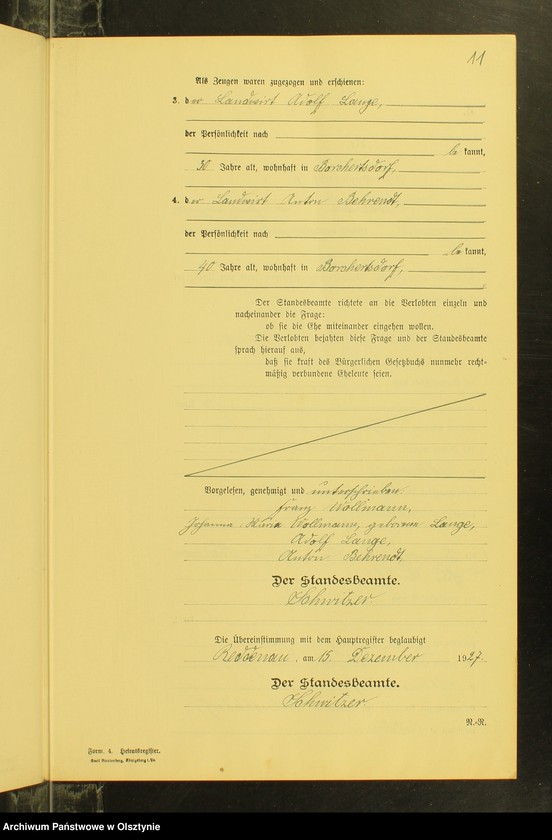 11
Als Zeugen waren zugezogen und erschienen:
3. der Landwirt Adolf Lange,
der Persönlichkeit nach
be kannt,
30 Jahre alt, wohnhaft in Borchertsdorf,
4. der Landwirt Anton Behrendt,
der Persönlichkeit nach
be kannt,
40 Jahre alt, wohnhaft in Borchertsdorf,
Der Standesbeamte richtete an die Verlobten einzeln und
nacheinander die Frage:
ob sie die Ehe miteinander eingehen wollen.
Die Verlobten bejahten diese Frage und der Standesbeamte
sprach hierauf aus,
daß sie kraft des Bürgerlichen Gesetzbuchs nunmehr recht-
mäßig verbundene Eheleute seien.
Vorgelesen, genehmigt und unterschrieben
Franz Wollmann,
Johanna Maria Wollmann, geborene Lange,
Adolf Lange,
Anton Behrendt
Der Standesbeamte.
Schwitzer
Die Übereinstimmung mit dem Hauptregister beglaubigt
Reddenau, am 15. Dezember 1927.
Der Standesbeamte.
Schwitzer
N.-R.
Form. 4. Heiratsregister.
Königsberg i. Pr.
Archiwum Państwowe w Olsztynie